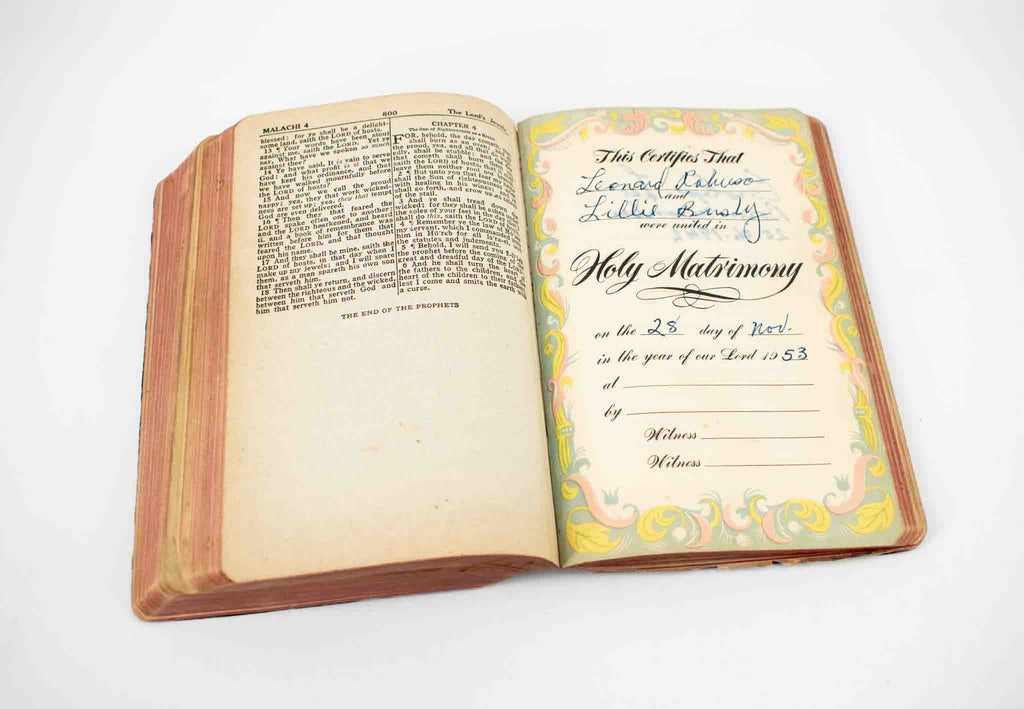 MALACHI 4 800 The Lord's
blessed: for ye shall be a delight-
some land, saith the LORD of hosts.
13 ¶ Your words have been stout
against me, saith the LORD. Yet ye
say, What have we spoken so much
against thee?
14 Ye have said, It is vain to serve
God: and what profit is it that we
have kept his ordinance, and that
we have walked mournfully before
the LORD of hosts?
15 And now we call the proud
happy; yea, they that work wicked-
ness are set up; yea, they that tempt
God are even delivered.
16 ¶ Then they that feared the
LORD spake often one to another:
and the LORD hearkened, and heard
it, and a book of remembrance was
written before him for them that
feared the LORD, and that thought
upon his name.
17 And they shall be mine, saith the
LORD of hosts, in that day when I
make up my jewels; and I will spare
them, as a man spareth his own son
that serveth him.
18 Then shall ye return, and discern
between the righteous and the wicked,
between him that serveth God and
him that serveth him not.
CHAPTER 4
The Sun of Righteousness
FOR, behold, the day cometh,
shall burn as an oven;
the proud, yea, and all that do
edly, shall be stubble: and the
that cometh shall burn them
saith the LORD of hosts, that
leave them neither root nor
2 ¶ But unto you that fear my
shall the Sun of righteousness
with healing in his wings; and
shall go forth, and grow up as
of the stall.
3 And ye shall tread down
wicked; for they shall be ashes
the soles of your feet in the day
shall do this, saith the LORD of
4 ¶ Remember ye the law of
my servant, which I commanded
him in Hō'reb for all
the statutes and judgments.
5 ¶ Behold, I will send you
the prophet before the coming of
great and dreadful day of the
6 And he shall turn the heart
the fathers to the children, and
heart of the children to their
lest I come and smite the earth with
a curse.
THE END OF THE PROPHETS
This Certifies That
Leonard
and
Lillie
were united in
Holy Matrimony
on the 28 day of Nov.
in the year of our Lord 1953
at
by
Witness
Witness